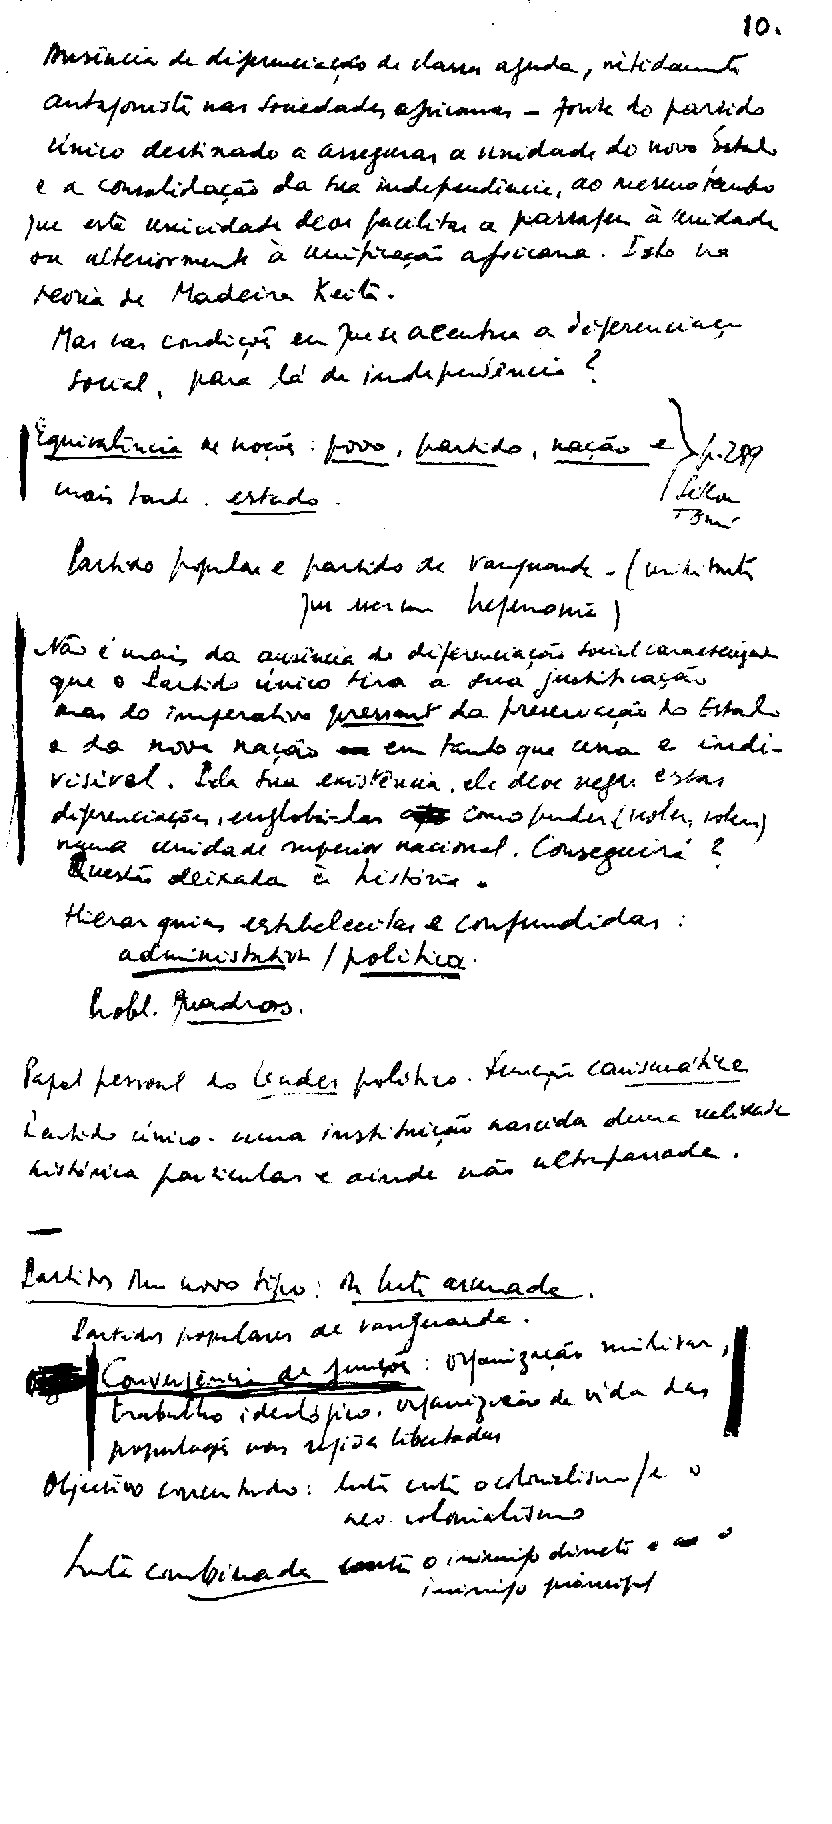 10.
Ausência de diferenciação de classes aguda, nitidamente
antagonista nas sociedades africanas – fonte do partido
único destinado a assegurar a unidade do novo Estado
e a consolidação da sua independência, ao mesmo tempo
que esta unicidade deve facilitar a passagem à unidade
ou ulteriormente à unificação africana. Isto na
teoria de Madeira Keita.
Mas nas condições em que se acentua a diferenciação
social, para lá da independência?
Equivalência de noções: povo, partido, nação e
mais tarde, estado.
p. 289
Sékou
Touré
Partido popular e partido de vanguarda – (militantes
que exercem hegemonia)
Não é mais da ausência de diferenciação social caracterizada
que o Partido único tira a sua justificação
mas do imperativo pressant da preservação do Estado
e da nova nação em tanto que una e indi-
visível. Pela sua existência, ele deve negar estas
diferenciações, englobá-las como puder (nolens, volens)
numa unidade superior nacional. Conseguirá?
Questão deixada à história.
Hierarquias estabelecidas e confundidas:
administrativa / política.
Probl. Quadros.
Papel pessoal do leader político. Função carismática
Partido único. uma instituição nascida duma realidade
histórica particular e ainda não ultrapassada.
—
Partidos dum novo tipo: da luta armada.
Partidos populares de vanguarda.
Convergência de funções: organização militar,
trabalho ideológico, organização de vida das
populações nas regiões libertadas
Objectivo concentrado: luta contra o colonialismo/e o
neo colonialismo
Luta combinada contra o inimigo directo e o
inimigo principal